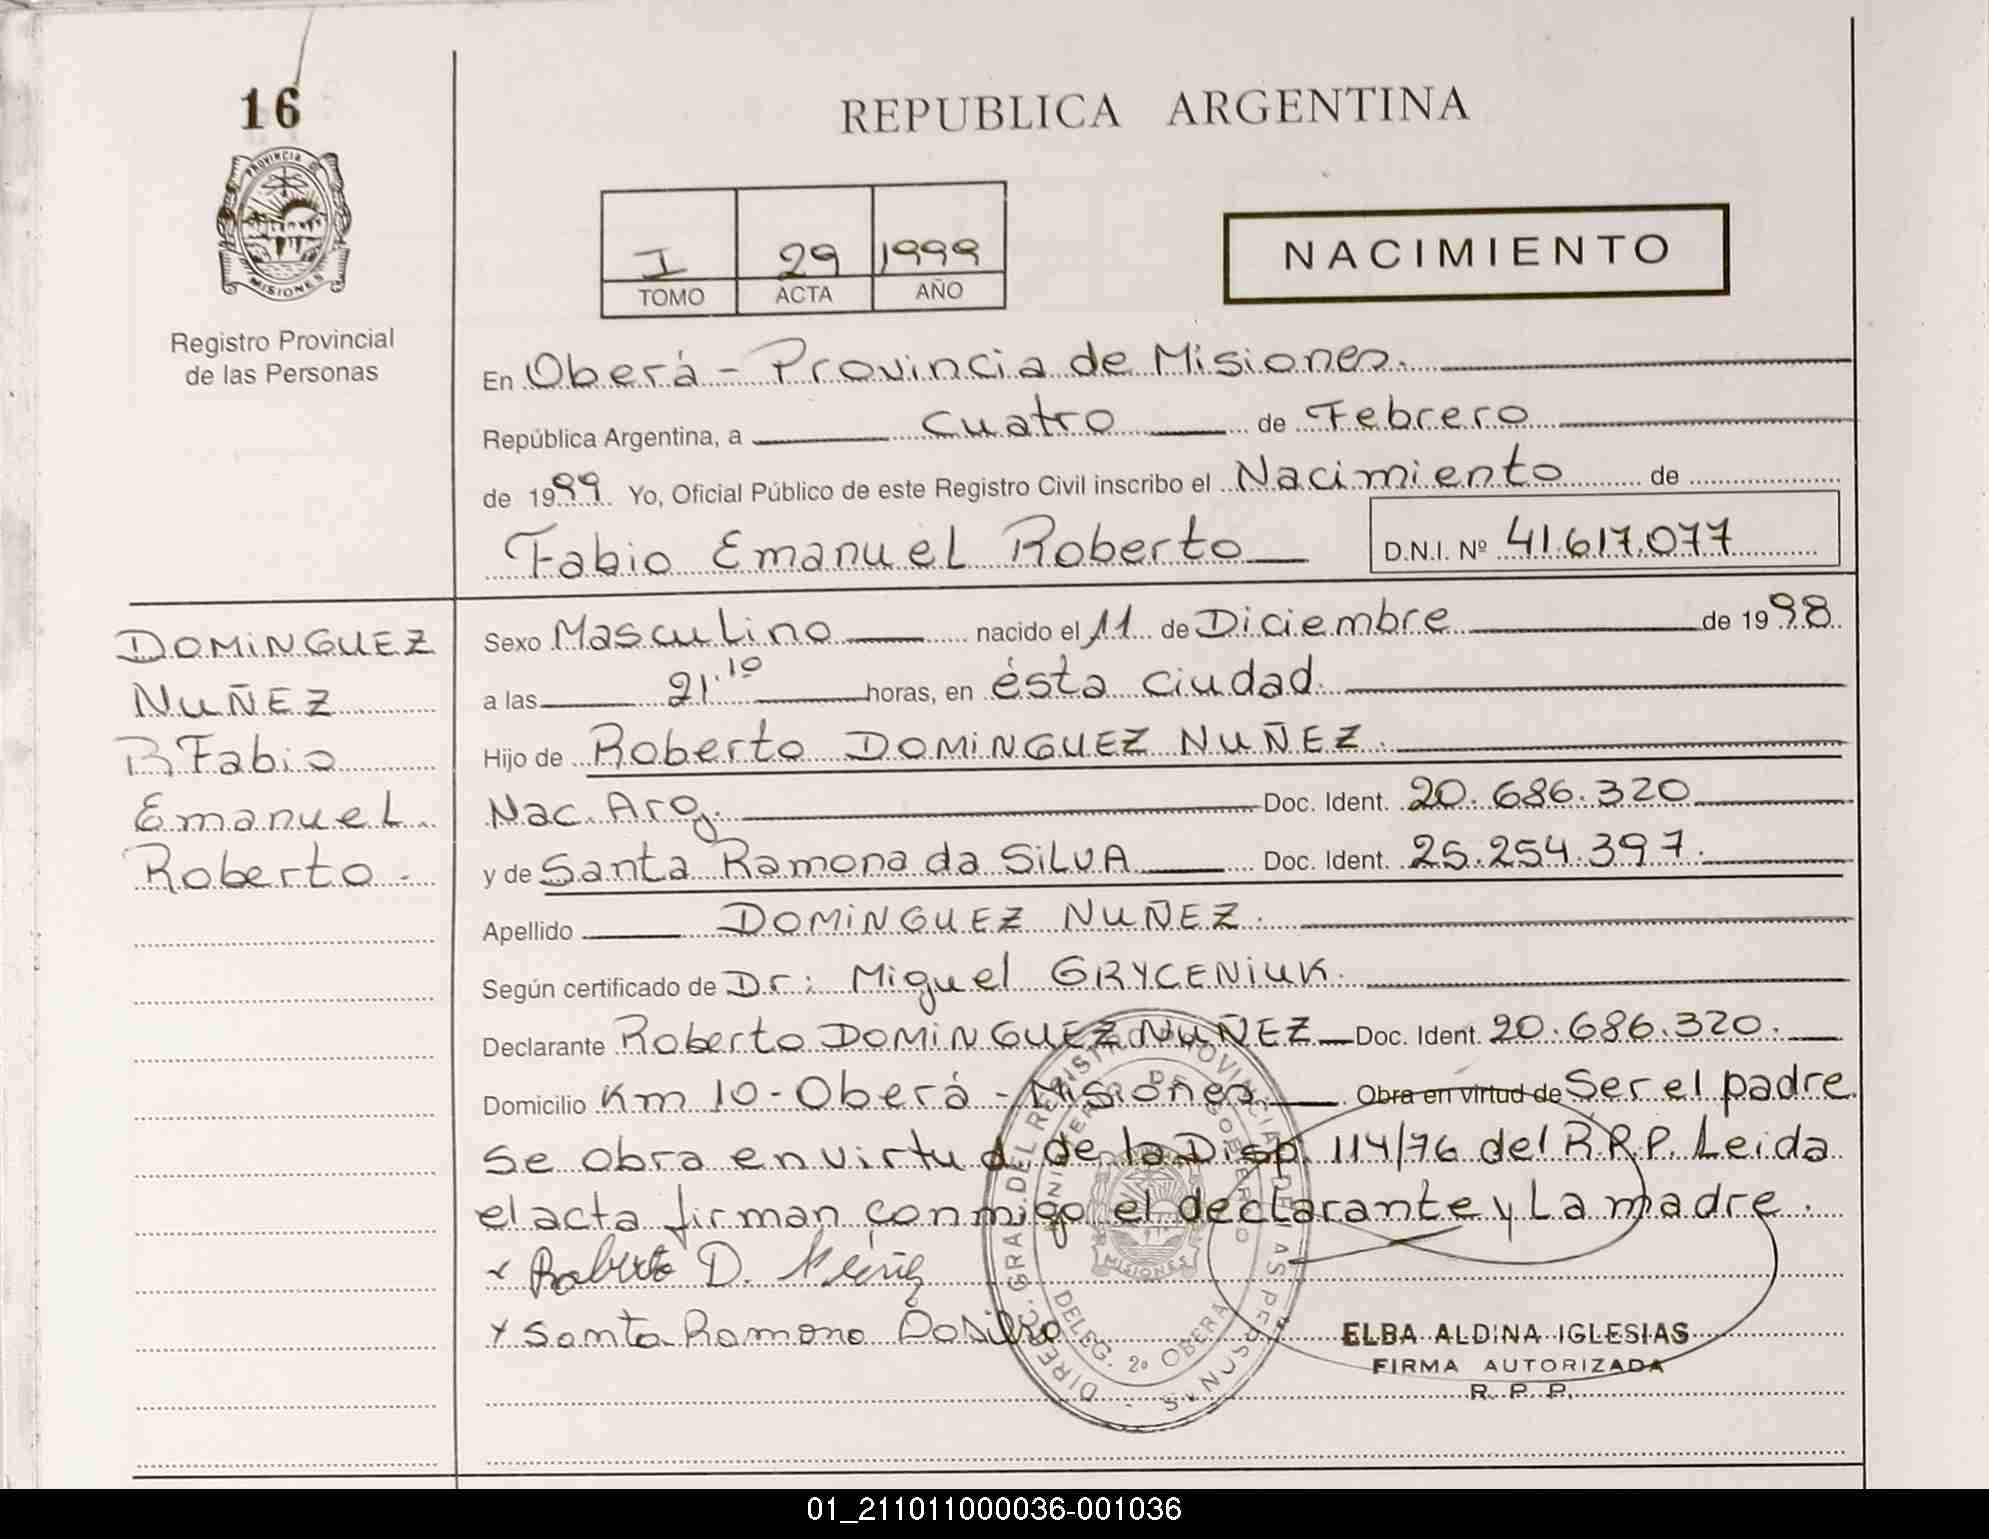 16
PROVINCIA D
MISIONES
Registro Provincial
de las Personas
REPUBLICA ARGENTINA
I 29 1999
TOMO ACTA AÑO
NACIMIENTO
En Oberá - Provincia de Misiones.
República Argentina, a cuatro de Febrero
de 1999. Yo, Oficial Público de este Registro Civil inscribo el Nacimiento de
Fabio Emanuel Roberto D.N.I. Nº 41.617.077
DOMINGUEZ
NUÑEZ
Fabio
Emanuel
Roberto.
Sexo Masculino nacido el 11 de Diciembre de 1998.
a las 21.10 horas, en ésta ciudad.
Hijo de Roberto DOMINGUEZ NUÑEZ.
Nac. Arg. Doc. Ident. 20.686.320
y de Santa Ramona da SILVA Doc. Ident. 25.254.397.
Apellido DOMINGUEZ NUÑEZ.
Según certificado de Dr: Miguel GRYCENIUK.
Declarante Roberto DOMINGUEZ NUÑEZ Doc. Ident. 20.686.320.
Domicilio Km 10 - Oberá - Misiones. Obra en virtud de Ser el padre
se obra en virtud de la Disp. 114/76 del R.R.P. Leida
el acta firman conmigo el declarante y La madre.
x Roberto D.
x Santa Ramona Dasilva
DELEG. 2º OBERA
MISIONES
ELBA ALDINA IGLESIAS
FIRMA AUTORIZADA
R. P. P.
01_211011000036-001036